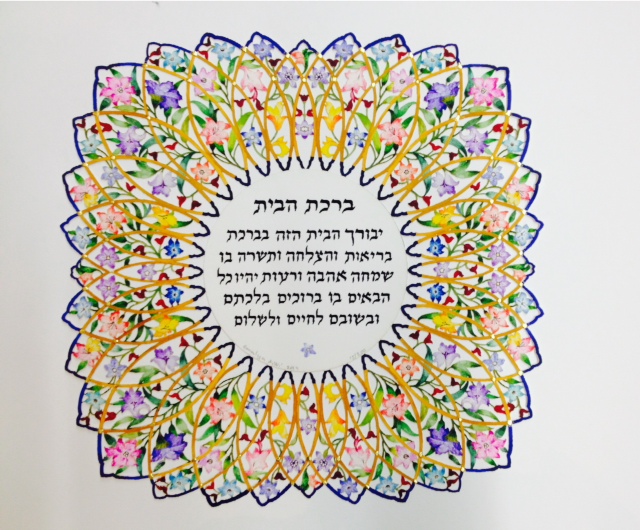 ברכת הבית
יבורך הבית הזה בברכת
בריאות והצלחה ותשרה בו
שמחה אהבה ורעות יהיו כל
הבאים בו ברוכים בלכתם
ובשובם לחיים ולשלום